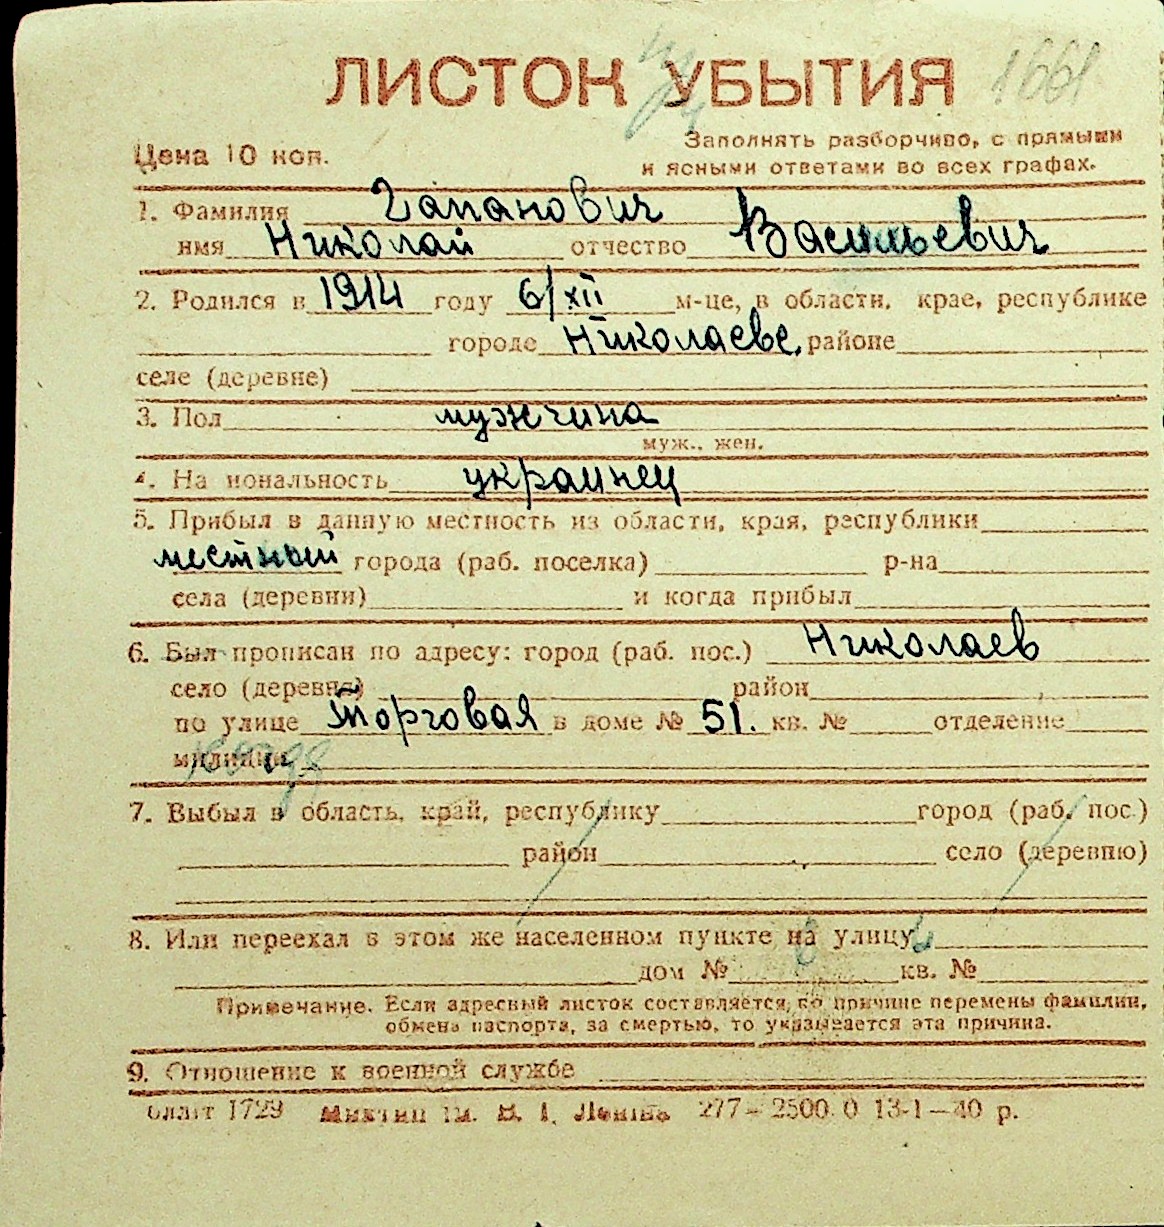 ЛИСТОК УБЫТИЯ 1661
Цена 10 коп.
Заполнять разборчиво, с прямыми
и ясными ответами во всех графах.
1. Фамилия Гапанович
имя Николай отчество Васильевич
2. Родился в 1914 году 6/XII м-це, в области, крае, республике
городе Николаеве, районе
селе (деревне)
3. Пол мужчина
муж., жен.
4. На иональность украинец
5. Прибыл в данную местность из области, края, республики
местный города (раб. поселка) р-на
села (деревни) и когда прибыл
6. Был прописан по адресу: город (раб. пос.) Николаев
село (деревня) район
по улице Торговая в доме № 51. кв. № отделение
милиции
7. Выбыл в область, край, республику город (раб. пос.)
район село (деревню)
8. Или переехал в этом же населенном пункте на улицу
дом № кв. №
Примечание. Если адресный листок составляется, по причине перемены фамилии,
обмена паспорта, за смертью, то указывается эта причина.
9. Отношение к военной службе
1729 ім. В. І. Леніна 277—2500.0 13-1—40 р.